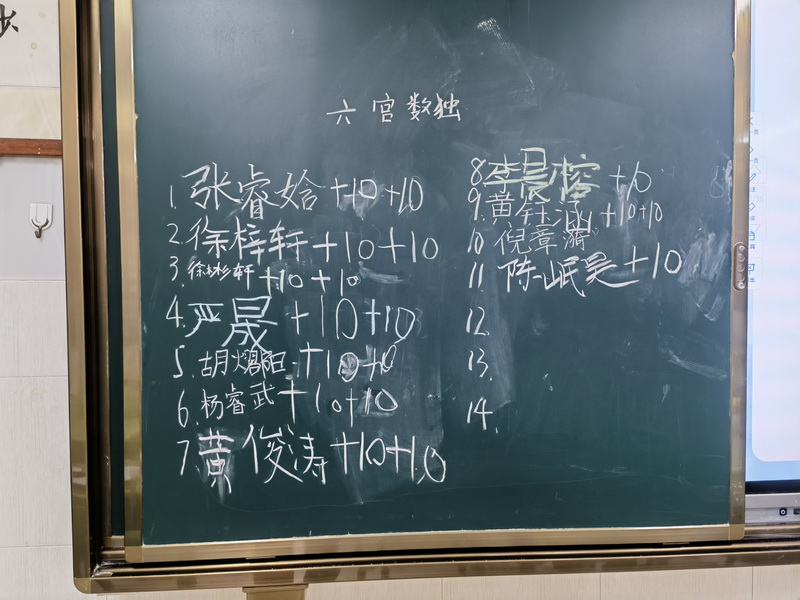 六宫数独
1. 张睿娢 +10 +10
2. 徐梓轩 +10+10
3. 徐彬轩 +10 +10
4. 严晟 +10+10
5. 胡熠阳 +10+10
6. 杨睿武 +10+10
7. 黄俊涛 +10+10
8. 李晨榕 +10
9. 黄钰涵 +10+10
10. 倪章漪
11. 陈岷昊 +10
12.
13.
14.